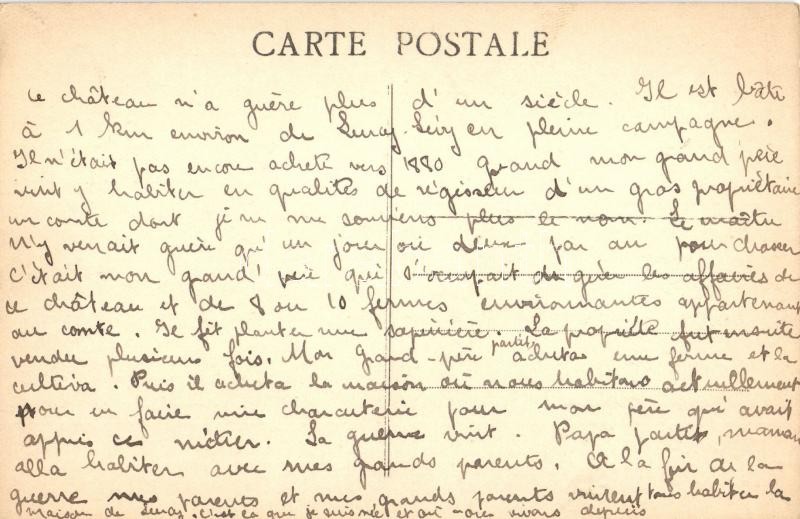 CARTE POSTALE
Ce château n'a guère plus d'un siècle. Il est bâti
à 1 km environ de Lurcy-Lévy en pleine campagne.
Il n'était pas encore acheté vers 1880 quand mon grand père
vint y habiter en qualités de régisseur d'un gros propriétaire
un comte dont je ne me souviens plus le nom. Le maître
n'y venait guère qu'un jour ou deux par an pour chasser
c'était mon grand' père qui s'occupait de gérer les affaires de
ce château et de 8 ou 10 fermes environnantes appartenant
au comte. Il fit planter une sapinière. La propriété fut ensuite
vendue plusieurs fois. Mon Grand-père partit acheta une ferme et la
cultiva. Puis il acheta la maison où nous habitons actuellement
pour en faire une charcuterie pour mon père qui avait
appris ce métier. La guerre vint. Papa partit, maman
alla habiter avec mes grands parents. A la fin de la
guerre mes parents et mes grands parents vinrent tous habiter la
maison de Lurcy. C'est là que je suis née et où nous vivons depuis